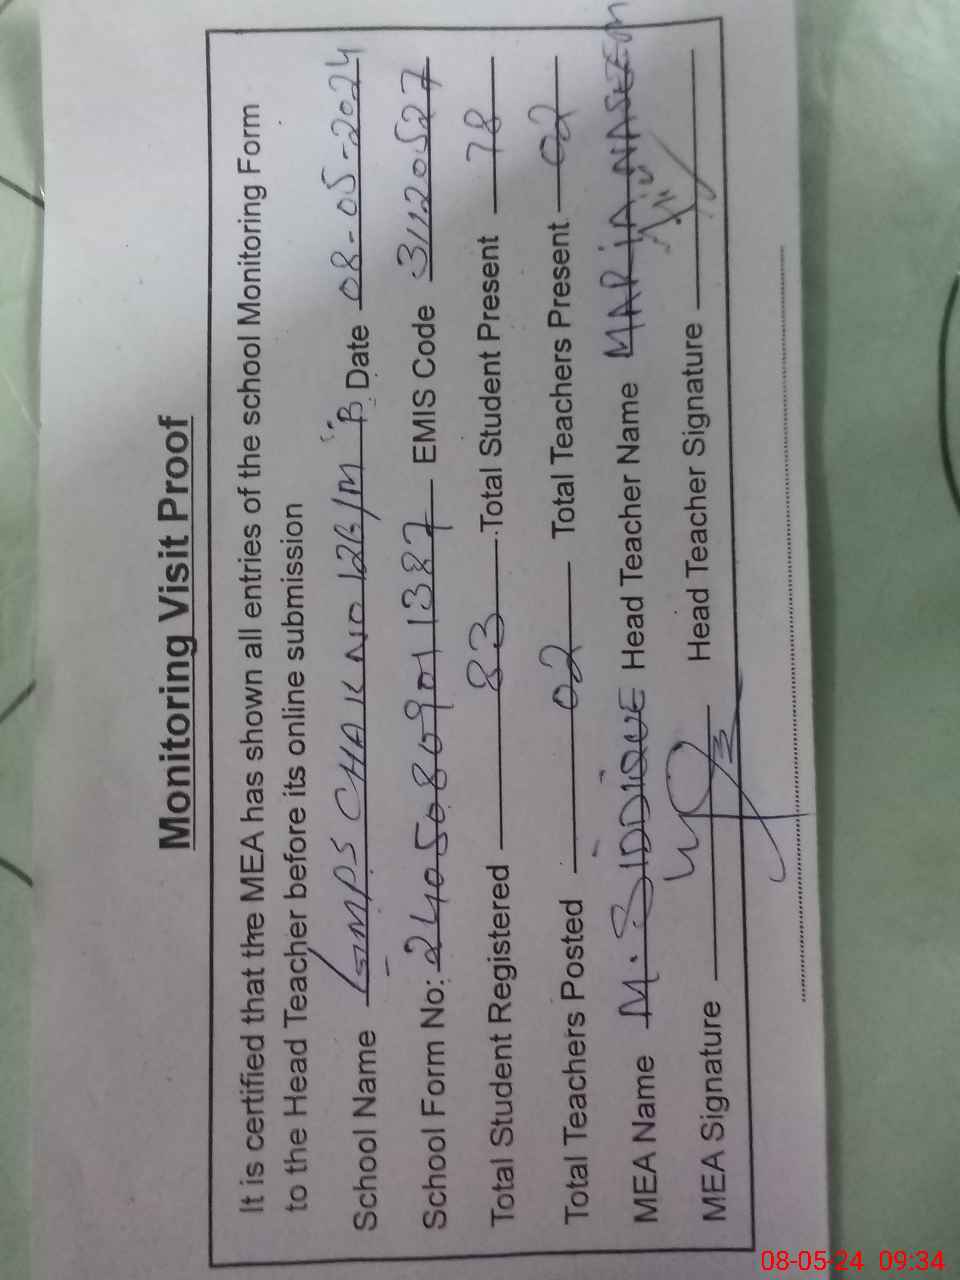 Monitoring Visit Proof
It is certified that the MEA has shown all entries of the school Monitoring Form
to the Head Teacher before its online submission
School Name GMPS CHAK NO 12G/M "B" Date 08-05-2024
School Form No: 24050809011387 EMIS Code 31120527
Total Student Registered 83 Total Student Present 78
Total Teachers Posted 02 Total Teachers Present 02
MEA Name M. SIDDIQUE Head Teacher Name MARIA NASEEM
MEA Signature Head Teacher Signature
08-05-24 09:34